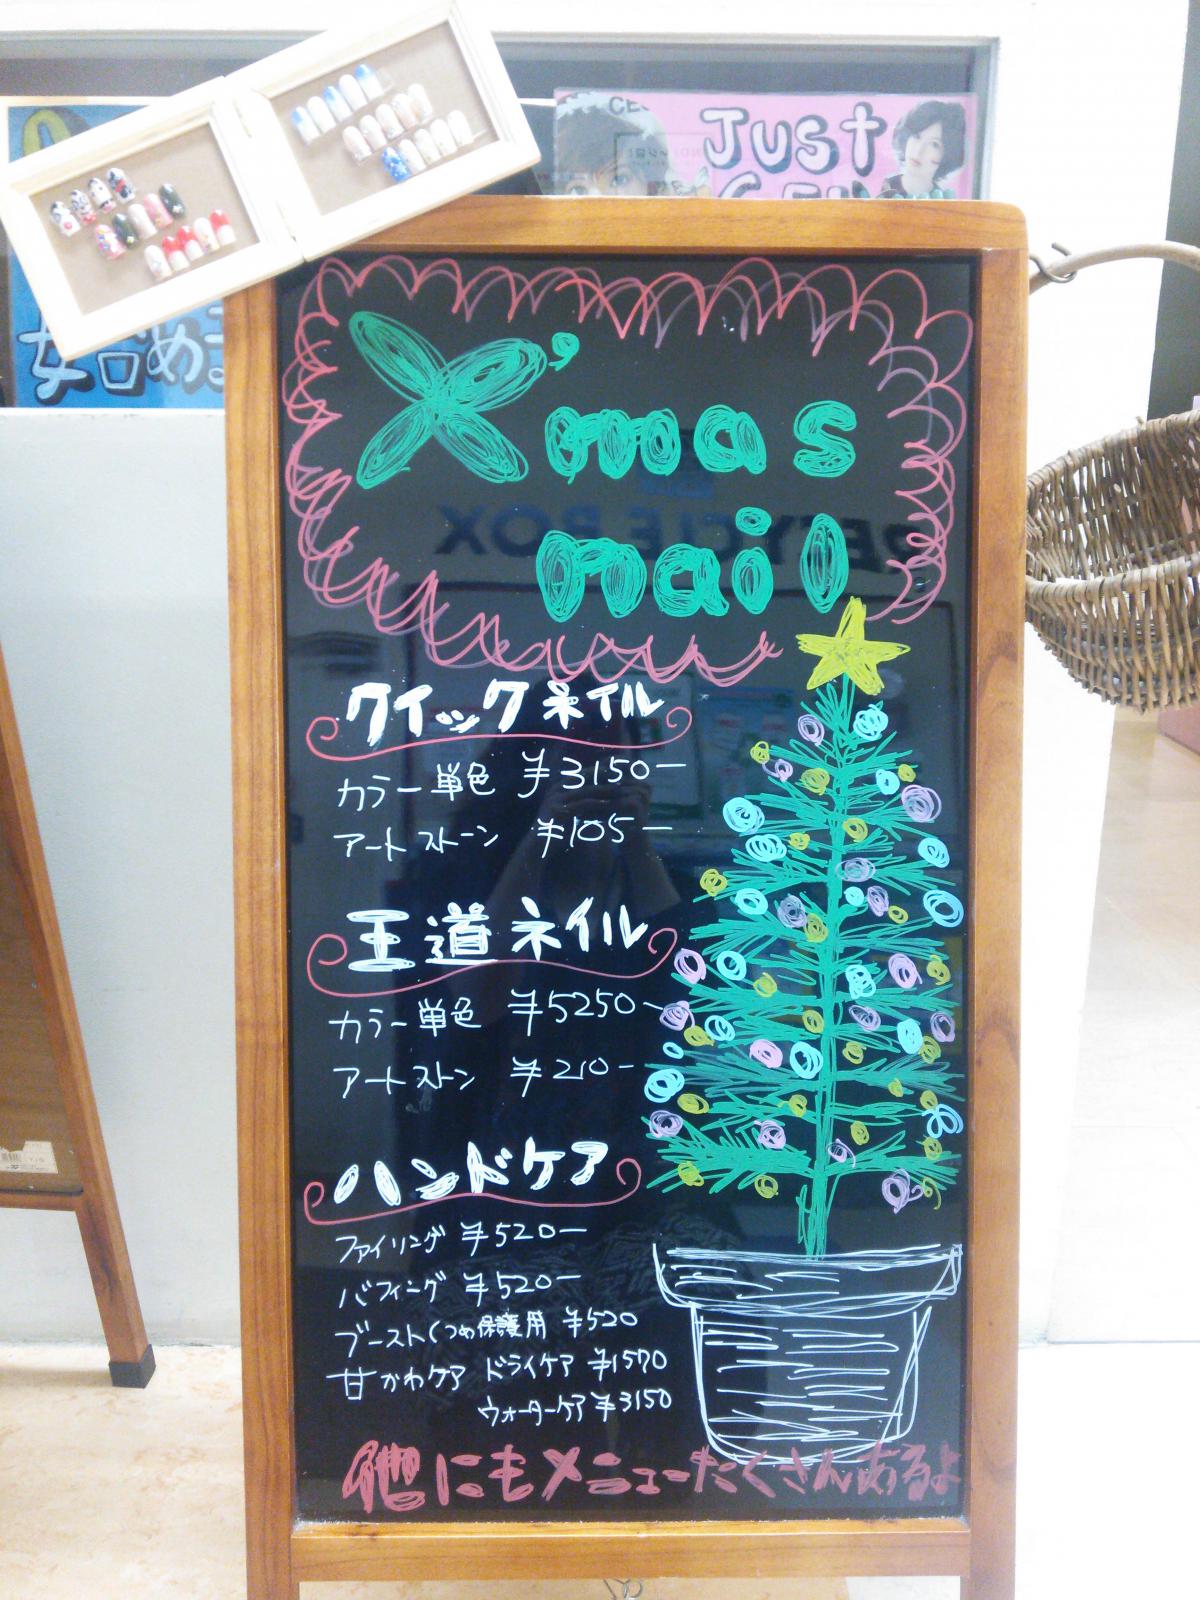 JUST
X'mas
nail
RECYCLE BOX
クイックネイル
カラー単色 ¥3150ー
アートストーン ¥105ー
王道ネイル
カラー単色 ¥5250ー
アートストン ¥210ー
ハンドケア
ファイリング ¥520ー
バフィング ¥520ー
ブースト(つめ保護用 ¥520
甘かわケア ドライケア ¥1570
ウォーターケア ¥3150
他にもメニューたくさんあるよ